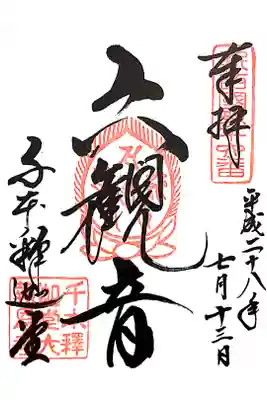 奉拝
平成二十八年
七月十三日
六観音
千本釈迦堂